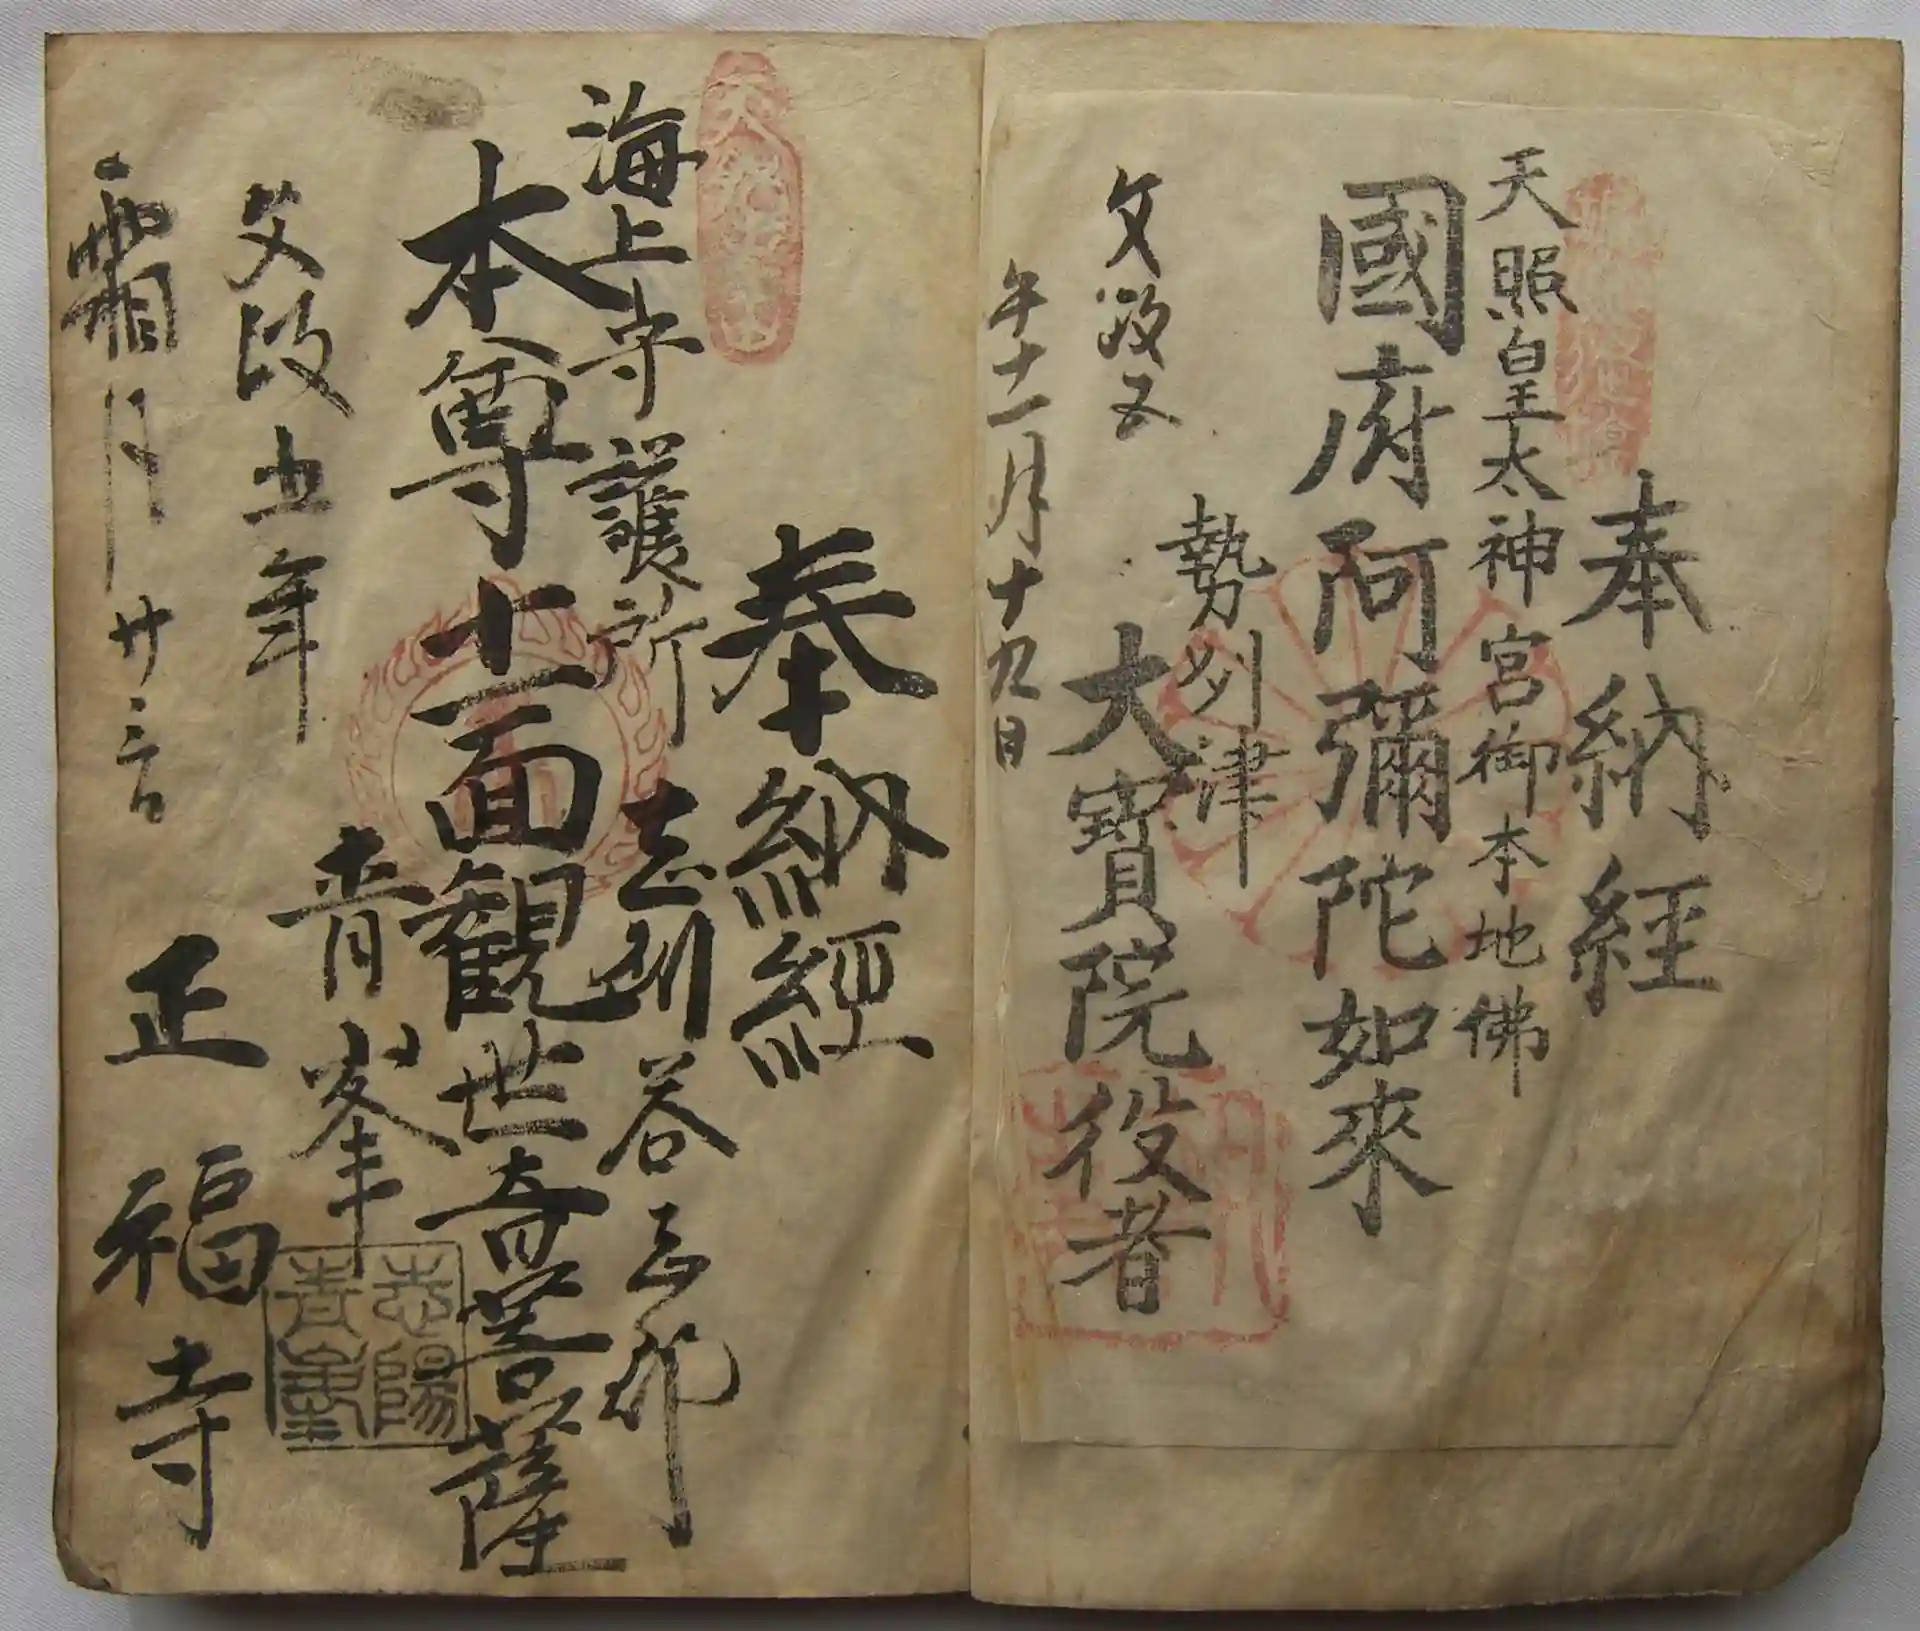 奉納経
天照皇太神宮御本地佛
國府阿彌陀如來
勢州津
大寳院役者
文政五
午十一月十九日
奉納經
海上守護所
志州答志郡
本尊十一面観世音菩薩
青峯
正福寺
文政五年
霜月廿三日
志陽
青峯